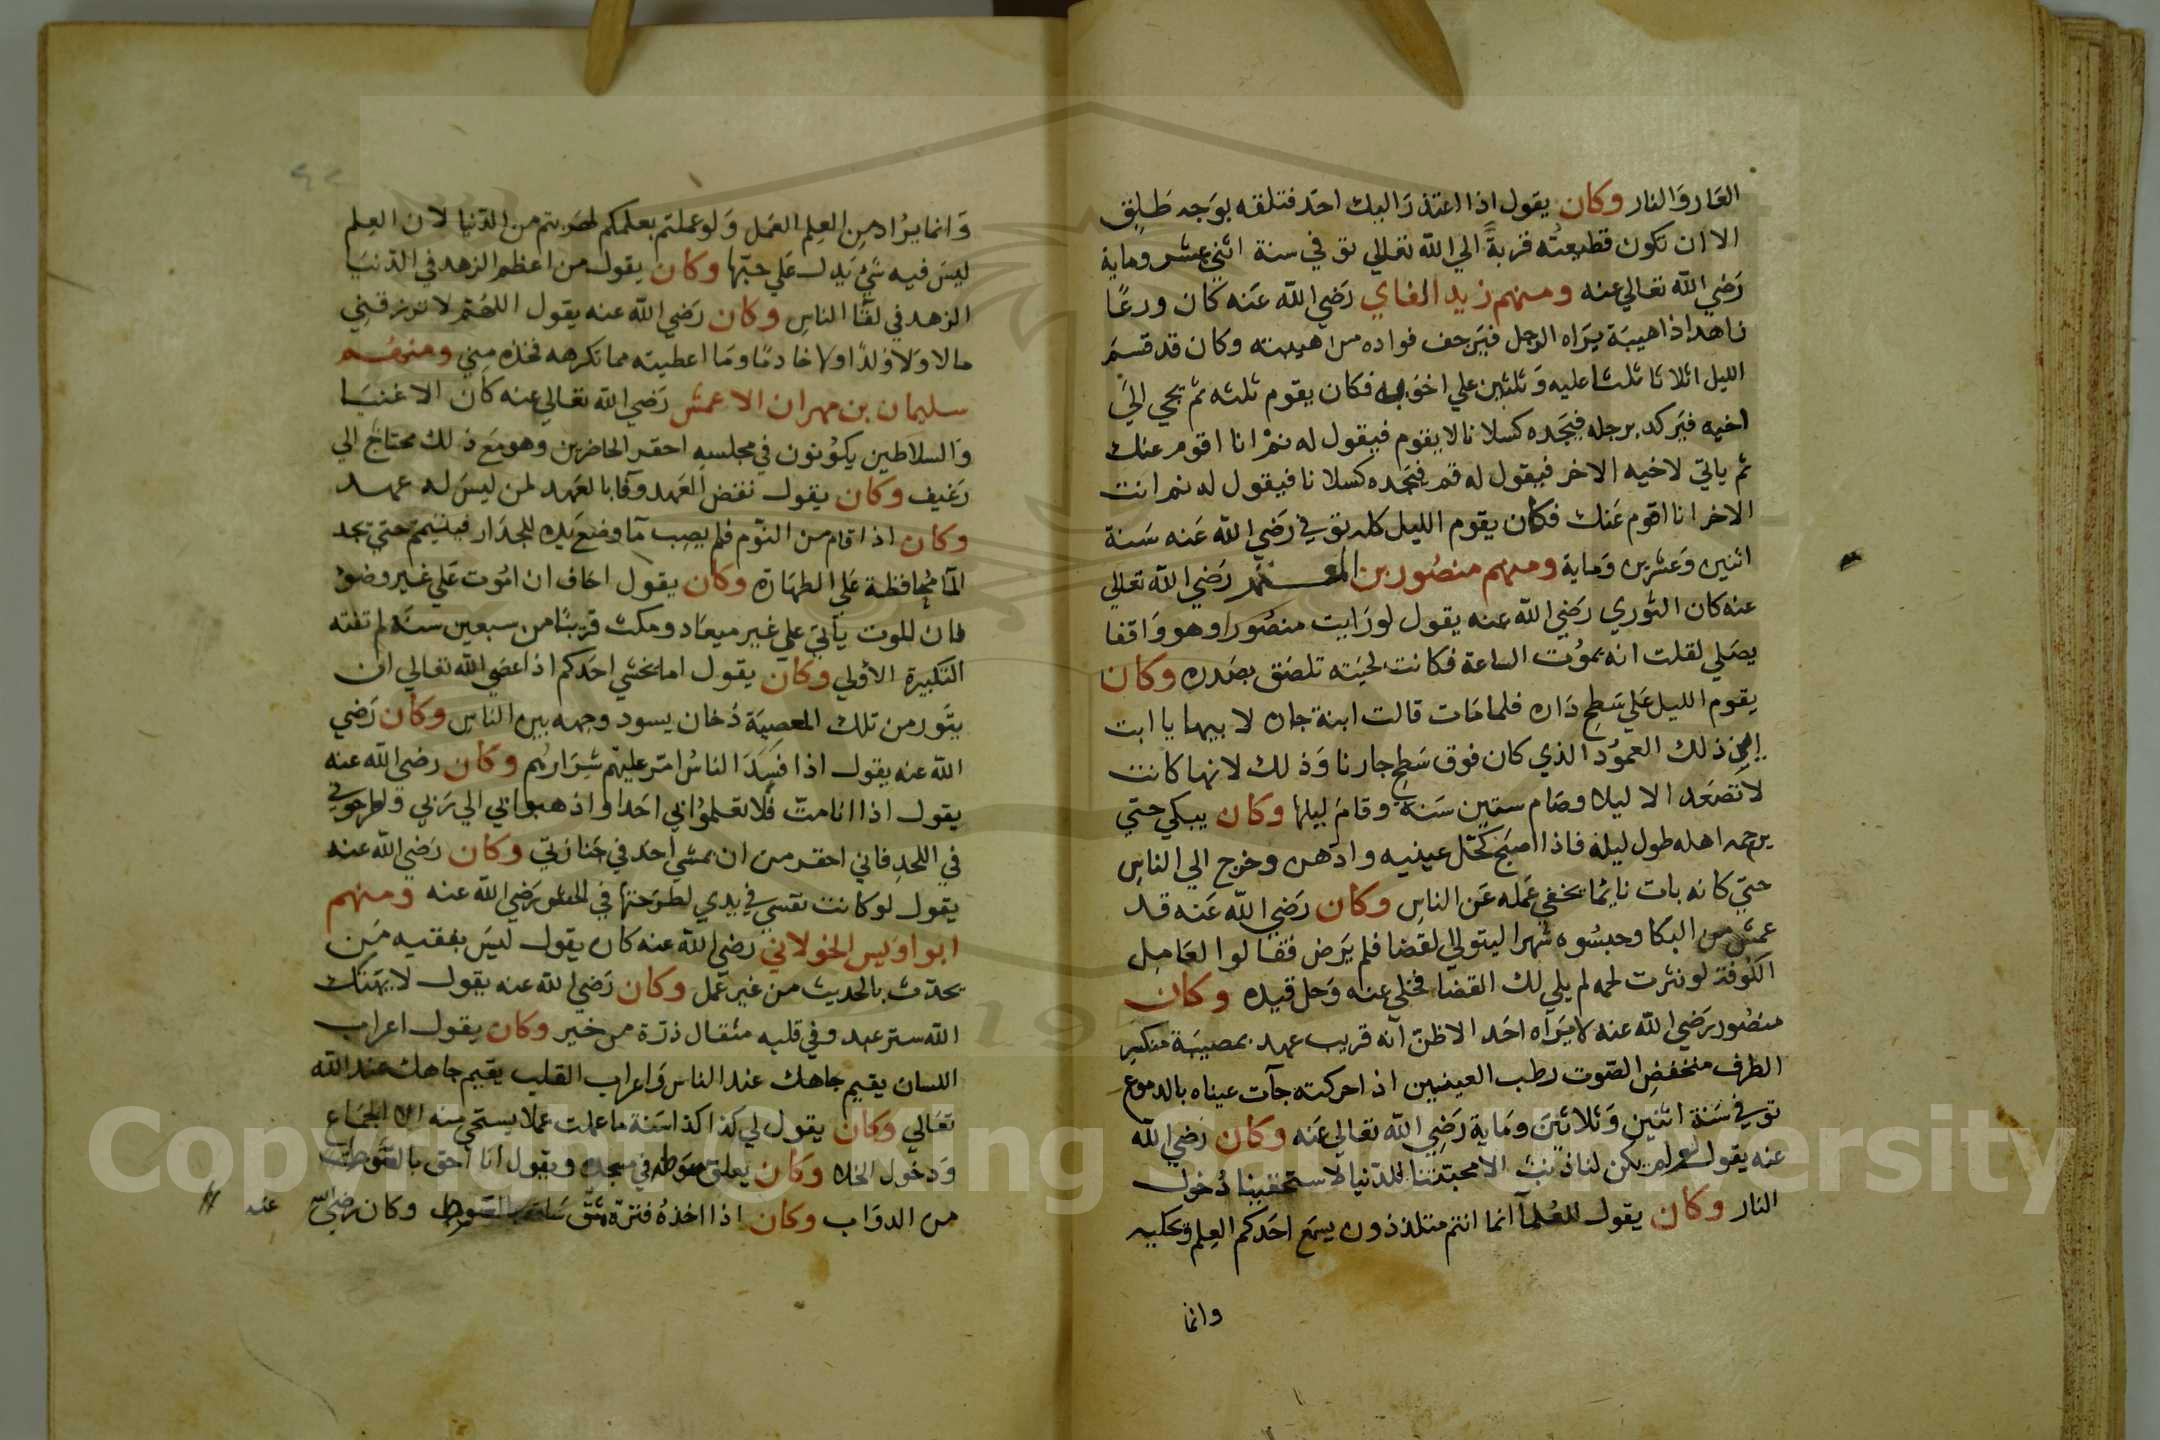 العار والنار وكان يقول اذا اعتذر اليك احد فتلقه بوجه طليق
الا ان تكون قطيعته قربة الي الله تعالي توفي سنة اثني عشر وماية
رضي الله تعالي عنه ومنهم زيد اليافي رضي الله عنه كان ورعا
زاهدا ذا هيبة يراه الرجل فيرجف فواده من هيبته وكان قد قسم
الليل اثلاثا ثلثا عليه وثلثين علي اخويه فكان يقوم ثلثه ثم يجي الي
اخيه فيركه برجله فيجده كسلانا لا يقوم فيقول له نم انا اقوم عنك
ثم ياتي لاخيه الاخر فيقول له قم فيجده كسلانا فيقول له نم انت
الاخر انا اقوم عنك فكان يقوم الليل كله توفي رضي الله عنه سنة
اثنين وعشرين وماية ومنهم منصور بن المعتمر رضي الله تعالي
عنه كان الثوري رضي الله عنه يقول لو رايت منصورا وهو واقفا
يصلي لقلت انه يموت الساعة فكانت لحيته تلصق بصدره وكان
يقوم الليل علي سطح داره فلما مات قالت ابنة جاره لابيها يا ابت
اين ذلك العمود الذي كان فوق سطح جارنا وذلك لانها كانت
لا تصعد الا ليلا وصام ستين سنة وقام ليلها وكان يبكي حتي
يرحمه اهله طول ليله فاذا اصبح كحل عينيه وادهن وخرج الي الناس
حتي كانه بات نايما يخفي عمله عن الناس وكان رضي الله عنه قد
عمش من البكا وحبسوه شهرا ليتولي القضا فلم يرض فقالوا لعامل
الكوفة لو نثرت لحمه لم يلي لك القضا فخلي عنه وحل قيده وكان
منصور رضي الله عنه لا يراه احد الا ظن انه قريب عهد بمصيبة منكسر
الطرف منخفض الصوت رطب العينين اذا حركته جآت عيناه بالدموع
توفي سنة اثنين وثلاثين وماية رضي الله تعالي عنه وكان رضي الله
عنه يقول لو لم يكن لنا ذنب الا محبتنا للدنيا لاستحقينا دخول
النار وكان يقول للعلمآ انما انتم متلذذون يسمع احدكم العلم ويحكيه
وانما
وانما يراد من العلم العمل ولو عملتم بعلمكم لهربتم من الدنيا لان العلم
ليس فيه شي يدل علي حبها وكان يقول من اعظم الزهد في الدنيا
الزهد في لقا الناس وكان رضي الله عنه يقول اللهم لا ترزقني
مالا ولا ولدا ولا خادما وما اعطيته مما تكرهه فخذه مني ومنهم
سليمان بن مهران الاعمش رضي الله تعالي عنه كان الاغنيا
والسلاطين يكونون في مجلسه احقر الحاضرين وهو مع ذلك محتاج الي
رغيف وكان يقول نقض العهد وفا بالعهد لمن ليس له عهد
وكان اذا قام من النوم فلم يصب مآ وضع يده للجدار فيتيمم حتي تجد
المآ محافظة علي الطهارة وكان يقول اخاف ان اموت علي غير وضو
فان الموت ياتي علي غير ميعاد ومكث قريبا من سبعين سنة لم تفته
التكبيرة الاولي وكان يقول اما يخشي احدكم اذا عصي الله تعالي ان
يثور من تلك المعصية دخان يسود وجهه بين الناس وكان رضي
الله عنه يقول اذا فسد الناس امر عليهم شرارهم وكان رضي الله عنه
يقول اذا انا مت فلا تعلموا بي احدا واذهبوا بي الي ربي واطرحوني
في اللحد فاني احقر من ان يمشي احد في جنازتي وكان رضي الله عنه
يقول لو كانت نفسي في يدي لطرحتها في الحش رضي الله عنه ومنهم
ابو اويس الخولاني رضي الله عنه كان يقول ليس بفقيه من
يحدث بالحديث من غير عمل وكان رضي الله عنه يقول لا يهتك
الله ستر عبد وفي قلبه مثقال ذرة من خير وكان يقول اعراب
اللسان يقيم جاهك عند الناس واعراب القلب يقيم جاهك عند الله
تعالي وكان يقول لي كذا كذا سنة ما عملت عملا يستحي منه الا الجماع
ودخول الخلا وكان يعلق سوطه في مسجده ويقول انا احق بالسوط
من الدواب وكان اذا اخذه فترة مشق بالسوط وكان رضي الله
عنه